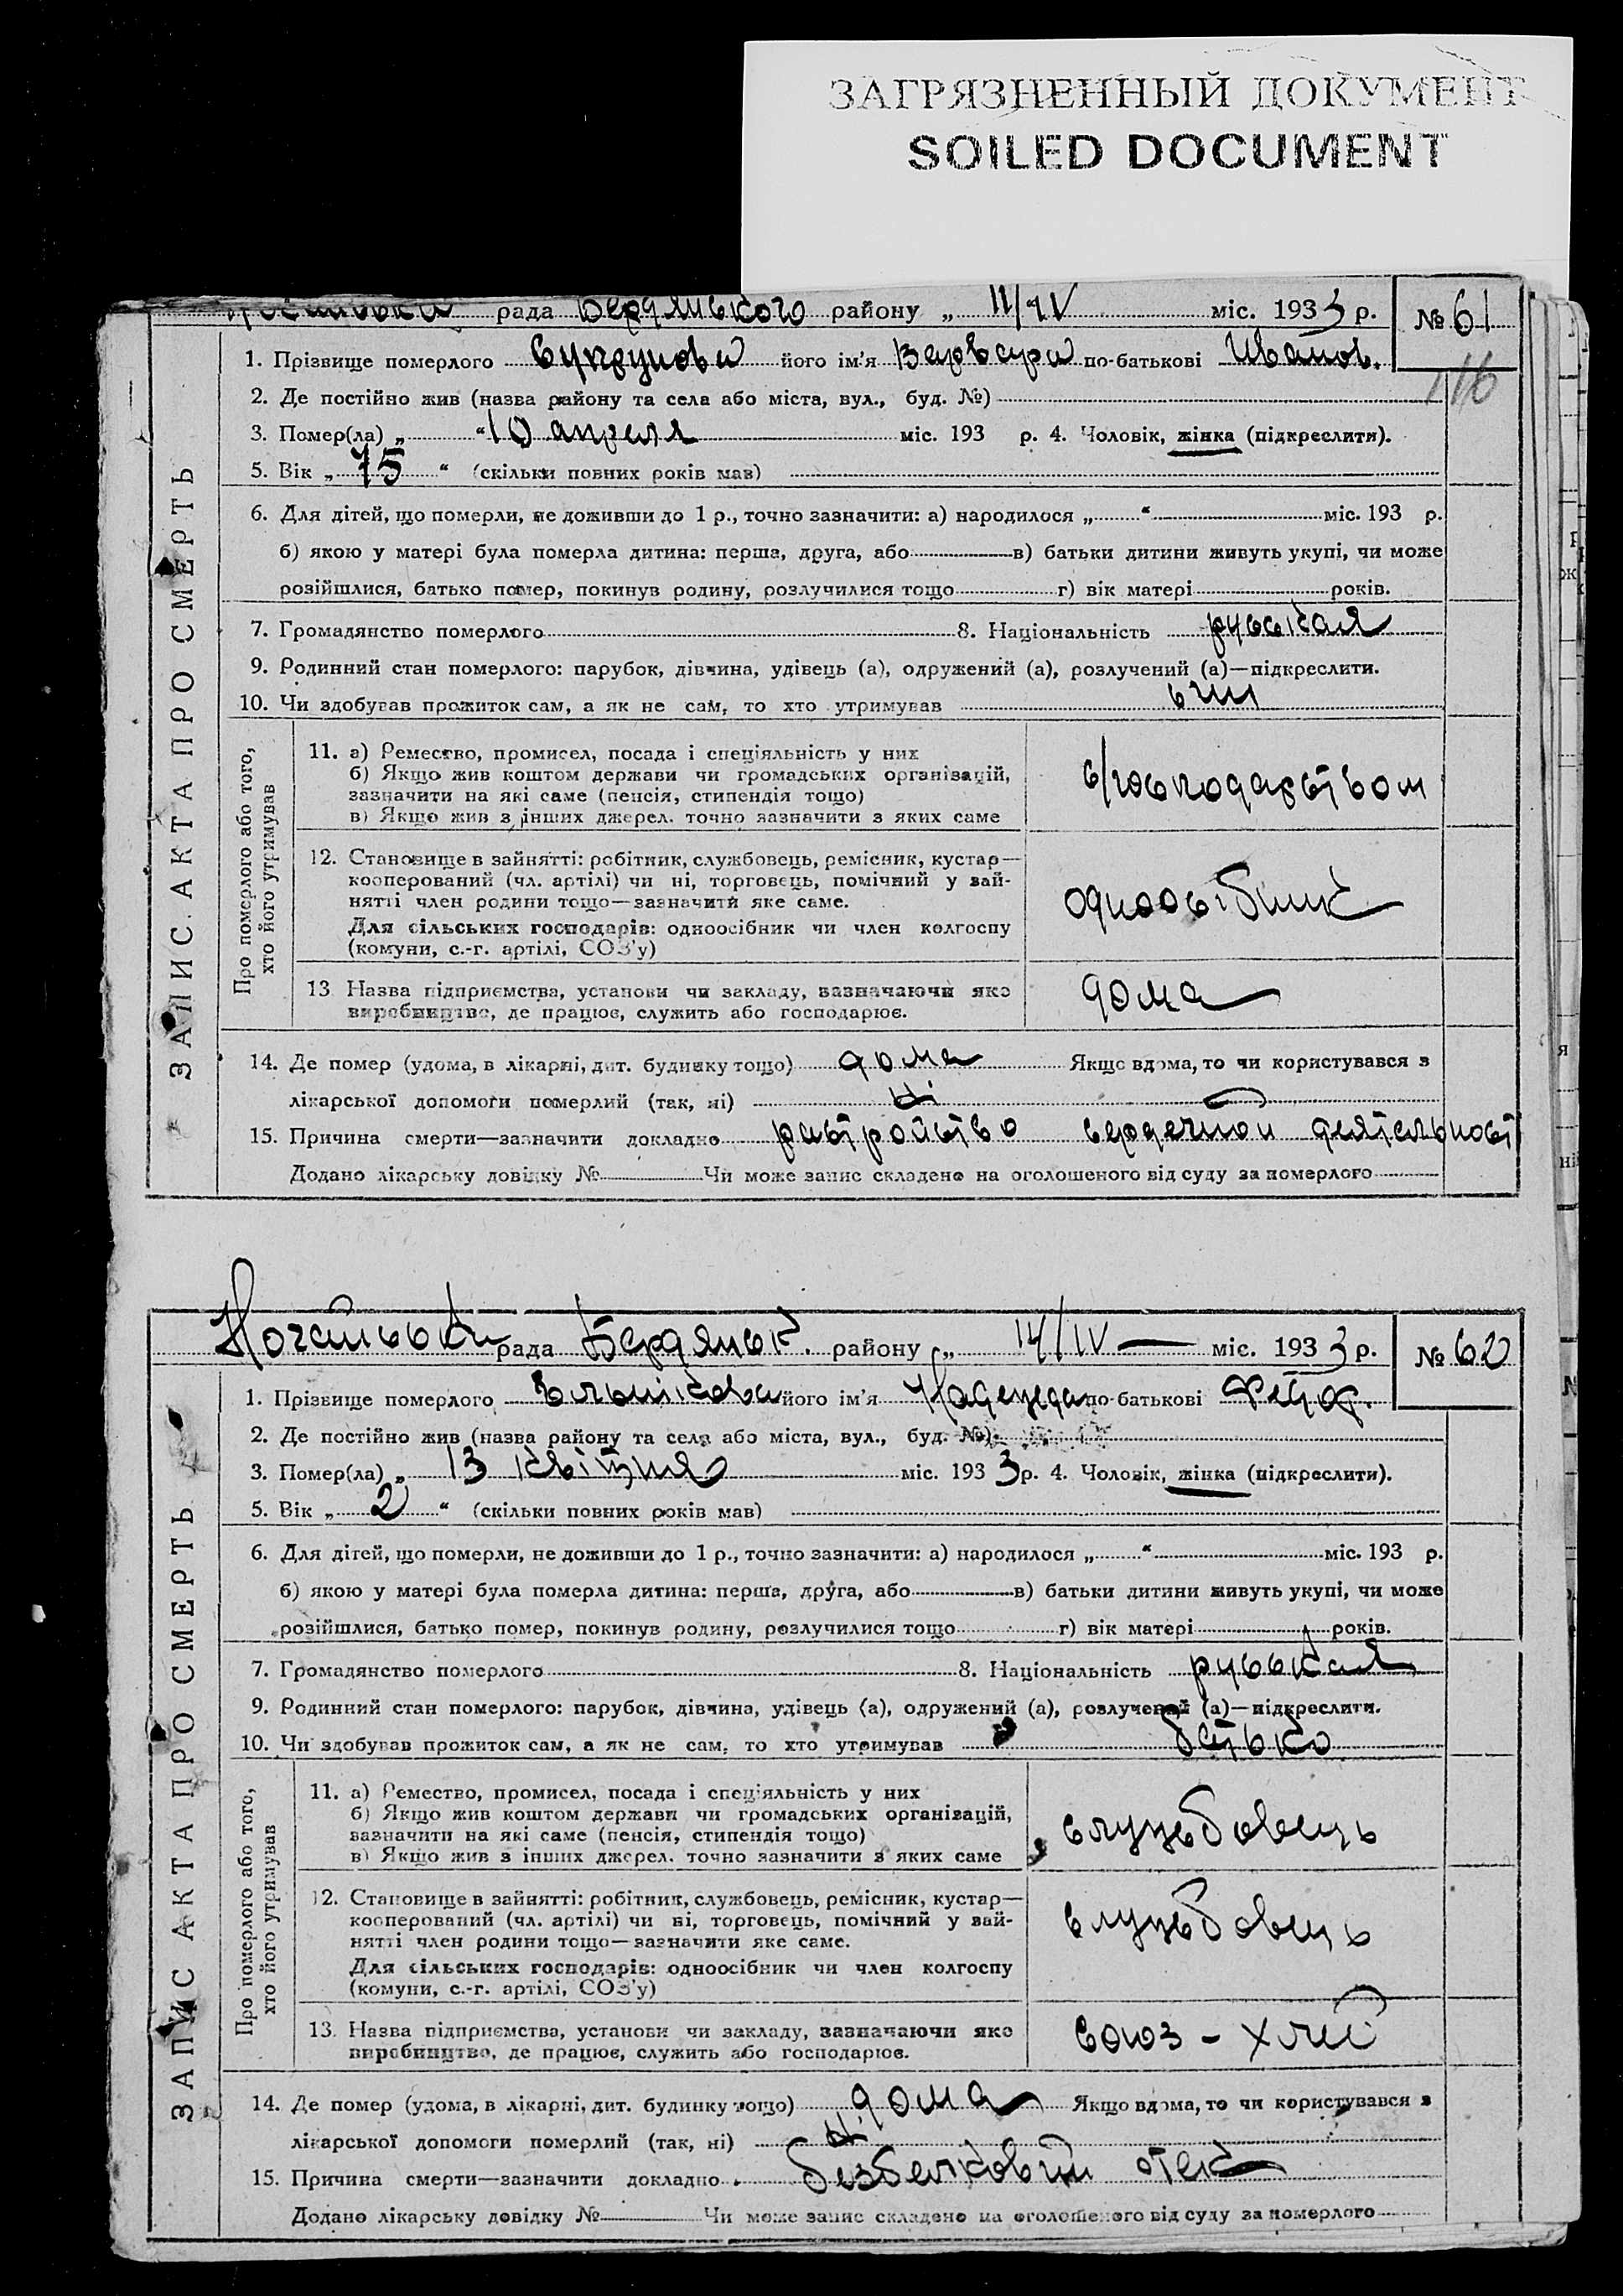 ЗАГРЯЗНЕННЫЙ ДОКУМЕНТ
SOILED DOCUMENT
рада Бердянського району „ 11/IV міс. 1933 р. № 61
1. Прізвище померлого його ім'я Варвара по-батькові Иванов.
116
2. Де постійно жив (назва району та села або міста, вул., буд. №)
3. Помер(ла) „ “ 10 апреля міс. 193 р. 4. Чоловік, жінка (підкреслити).
5. Вік „ 75 “ (скільки повних років мав)
6. Для дітей, що померли, не доживши до 1 р., точно зазначити: а) народилося „ “ міс. 193 р.
б) якою у матері була померла дитина: перша, друга, або в) батьки дитини живуть укупі, чи може
розійшлися, батько помер, покинув родину, розлучилися тощо г) вік матері років.
7. Громадянство померлого 8. Національність русская
9. Родинний стан померлого: парубок, дівчина, удівець (а), одружений (а), розлучений (а)—підкреслити.
10. Чи здобував прожиток сам, а як не сам, то хто утримував син
ЗАПИС АКТА ПРО СМЕРТЬ
Про померлого або того, хто його утримував
11. а) Ремество, промисел, посада і спеціяльність у них
б) Якщо жив коштом держави чи громадських організацій,
зазначити на які саме (пенсія, стипендія тощо)
в) Якщо жив з інших джерел. точно зазначити з яких саме
с/господарством
12. Становище в зайнятті: робітник, службовець, ремісник, кустар—
кооперований (чл. артілі) чи ні, торговець, помічний у зай-
нятті член родини тощо—зазначити яке саме.
Для сільських господарів: одноосібник чи член колгоспу
(комуни, с.-г. артілі, СОЗ'у)
одноосібник
13. Назва підприємства, установи чи закладу, зазначаючи яке
виробництво, де працює, служить або господарює.
дома
14. Де помер (удома, в лікарні, дит. будинку тощо) дома Якщо вдома, то чи користувався з
лікарської допомоги померлий (так, ні) ні
15. Причина смерти—зазначити докладно растройство сердечной деятельност
Додано лікарську довідку № Чи може запис складено на оголошеного від суду за померлого
Ногайська рада Бердянськ. району „ 14/IV міс. 1933 р. № 62
1. Прізвище померлого його ім'я Надежда по-батькові Федор.
2. Де постійно жив (назва району та села або міста, вул., буд. №)
3. Помер(ла) „ 13 квітня міс. 1933 р. 4. Чоловік, жінка (підкреслити).
5. Вік „ 2 “ (скільки повних років мав)
6. Для дітей, що померли, не доживши до 1 р., точно зазначити: а) народилося „ “ міс. 193 р.
б) якою у матері була померла дитина: перша, друга, або в) батьки дитини живуть укупі, чи може
розійшлися, батько помер, покинув родину, розлучилися тощо г) вік матері років.
7. Громадянство померлого 8. Національність русская
9. Родинний стан померлого: парубок, дівчина, удівець (а), одружений (а), розлучений (а)—підкреслити.
10. Чи здобував прожиток сам, а як не сам, то хто утримував батько
ЗАПИС АКТА ПРО СМЕРТЬ
Про померлого або того, хто його утримував
11. а) Ремество, промисел, посада і спеціяльність у них
б) Якщо жив коштом держави чи громадських організацій,
зазначити на які саме (пенсія, стипендія тощо)
в) Якщо жив з інших джерел. точно зазначити з яких саме
служbовець
12. Становище в зайнятті: робітник, службовець, ремісник, кустар—
кооперований (чл. артілі) чи ні, торговець, помічний у зай-
нятті член родини тощо—зазначити яке саме.
Для сільських господарів: одноосібник чи член колгоспу
(комуни, с.-г. артілі, СОЗ'у)
службовець
13. Назва підприємства, установи чи закладу, зазначаючи яке
виробництво, де працює, служить або господарює.
союз - хліб
14. Де помер (удома, в лікарні, дит. будинку тощо) дома Якщо вдома, то чи користувався з
лікарської допомоги померлий (так, ні) ні
15. Причина смерти—зазначити докладно безбелковий отек
Додано лікарську довідку № Чи може запис складено на оголошеного від суду за померлого